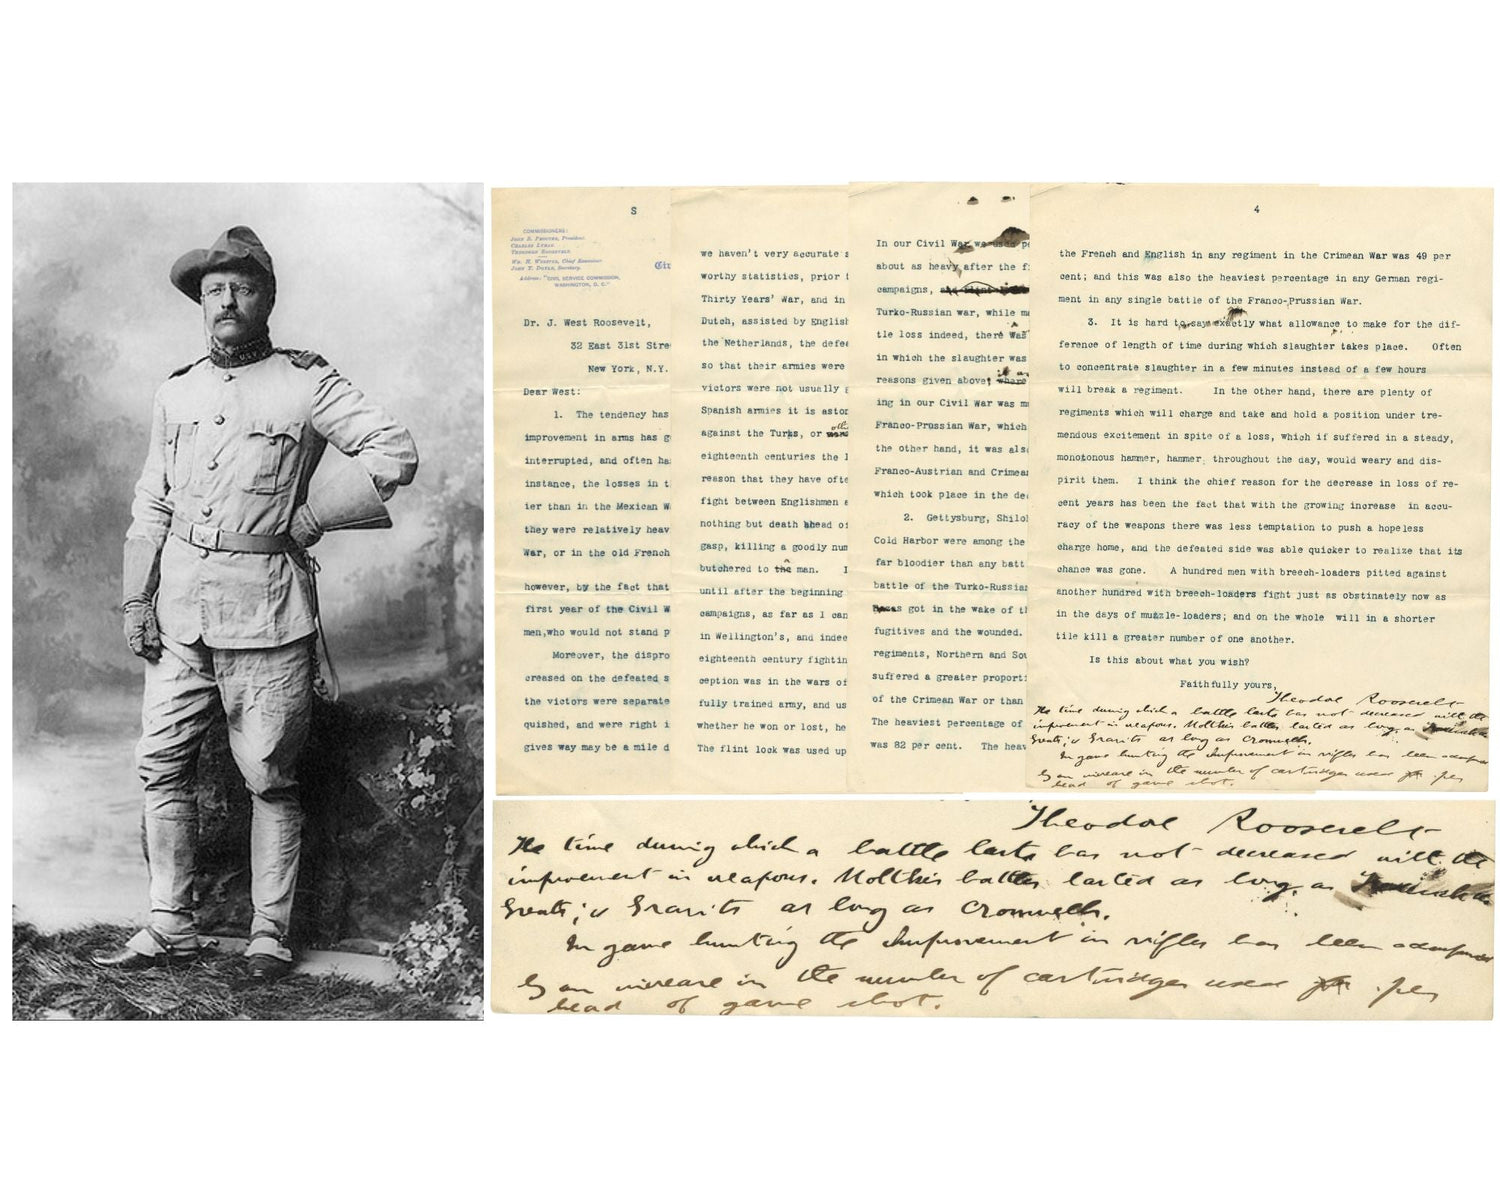 S
COMMISSIONERS:
JOHN R. PROCTER, President.
CHARLES LYMAN.
THEODORE ROOSEVELT.
WM. H. WEBSTER, Chief Examiner.
JOHN T. DOYLE, Secretary.
Address: "CIVIL SERVICE COMMISSION,
WASHINGTON, D. C."
Dr. J. West Roosevelt,
32 East 31st Stre
New York, N.Y.
Dear West:
1. The tendency has
improvement in arms has g
interrupted, and often ha
instance, the losses in t
ier than in the Mexican W
they were relatively heav
War, or in the old French
however, by the fact that
first year of the Civil W
men,who would not stand p
Moreover, the dispro
creased on the defeated s
the victors were separate
quished, and were right i
gives way may be a mile d
we haven't very accurate s
worthy statistics, prior t
Thirty Years' War, and in
Dutch, assisted by English
the Netherlands, the defea
so that their armies were
victors were not usually g
Spanish armies it is aston
against the Turks, or
eighteenth centuries the l
reason that they have ofte
fight between Englishmen a
nothing but death ahead of
gasp, killing a goodly num
butchered to the man. I
until after the beginning
campaigns, as far as I can
in Wellington's, and indee
eighteenth century fightin
ception was in the wars of
fully trained army, and us
whether he won or lost, he
The flint lock was used up
In our Civil War we used pe
about as heavy after the f
campaigns,
Turko-Russian war, while ma
tle loss indeed, there was
in which the slaughter was
reasons given above; where
ing in our Civil War was mu
Franco-Prussian War, which
the other hand, it was als
Franco-Austrian and Crimea
which took place in the de
2. Gettysburg, Shilo
Cold Harbor were among the
far bloodier than any batt
battle of the Turko-Russian
got in the wake of th
fugitives and the wounded.
regiments, Northern and Sou
suffered a greater proporti
of the Crimean War or than
The heaviest percentage of
was 82 per cent. The heav
4
the French and English in any regiment in the Crimean War was 49 per
cent; and this was also the heaviest percentage in any German regi-
ment in any single battle of the Franco-Prussian War.
3. It is hard to say exactly what allowance to make for the dif-
ference of length of time during which slaughter takes place. Often
to concentrate slaughter in a few minutes instead of a few hours
will break a regiment. In the other hand, there are plenty of
regiments which will charge and take and hold a position under tre-
mendous excitement in spite of a loss, which if suffered in a steady,
monotonous hammer, hammer, throughout the day, would weary and dis-
pirit them. I think the chief reason for the decrease in loss of re-
cent years has been the fact that with the growing increase in accu-
racy of the weapons there was less temptation to push a hopeless
charge home, and the defeated side was able quicker to realize that its
chance was gone. A hundred men with breech-loaders pitted against
another hundred with breech-loaders fight just as obstinately now as
in the days of muzzle-loaders; and on the whole will in a shorter
tile kill a greater number of one another.
Is this about what you wish?
Faithfully yours,
Theodore Roosevelt
The time during which a battle lasts has not decreased with the
improvement in weapons. Moltke's battles lasted as long as
Greats; &  as long as Cromwells.
In game hunting the improvement in rifles has been
by an increase in the number of cartridges used per
head of game shot.
Theodore Roosevelt
The time during which a battle lasts has not decreased with the
improvement in weapons. Moltke's battles lasted as long as
Greats; & Grant's as long as Cromwells.
In game hunting the improvement in rifles has been
by an increase in the number of cartridges used per
head of game shot.